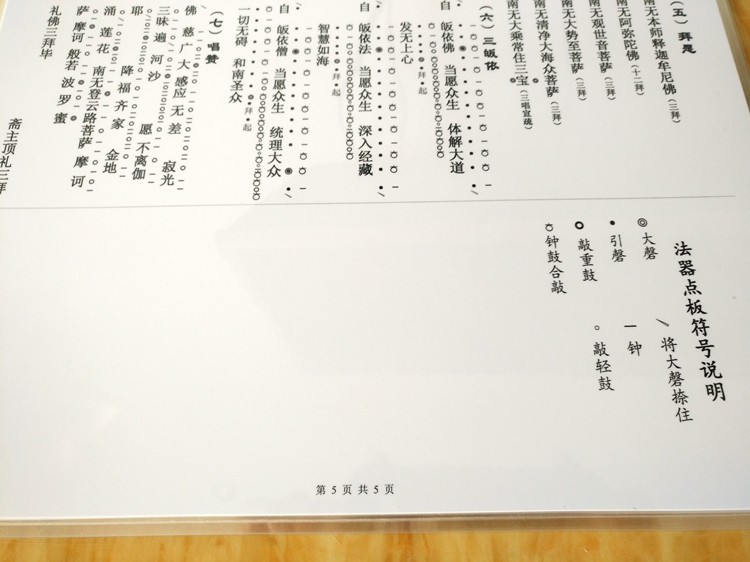 （五）拜愿
南无本师释迦牟尼佛（三拜）
南无阿弥陀佛（十二拜）
南无观世音菩萨（三拜）
南无大势至菩萨（三拜）
南无清净大海众菩萨（三拜）
南无大乘常住三宝（三唱宣疏）
（六）三皈依
自 皈依佛 当愿众生 体解大道
发无上心 拜 起
自 皈依法 当愿众生 深入经藏
智慧如海 拜 起
自 皈依僧 当愿众生 统理大众
一切无碍 和南圣众 拜 起
（七）唱赞
佛 慈 广 大 感应 无 差 寂光
三昧 遍 河沙 愿 不离伽
耶 降 福 齐 家 金地
涌 莲花 南无登云路菩萨 摩 诃
萨 摩诃 般若 波 罗 蜜
礼佛三拜毕 斋主顶礼三拜
法器点板符号说明
◎大磬 \将大磬捺住
•引磬 一钟
敲重鼓 。敲轻鼓
钟鼓合敲
第 5 页 共 5 页